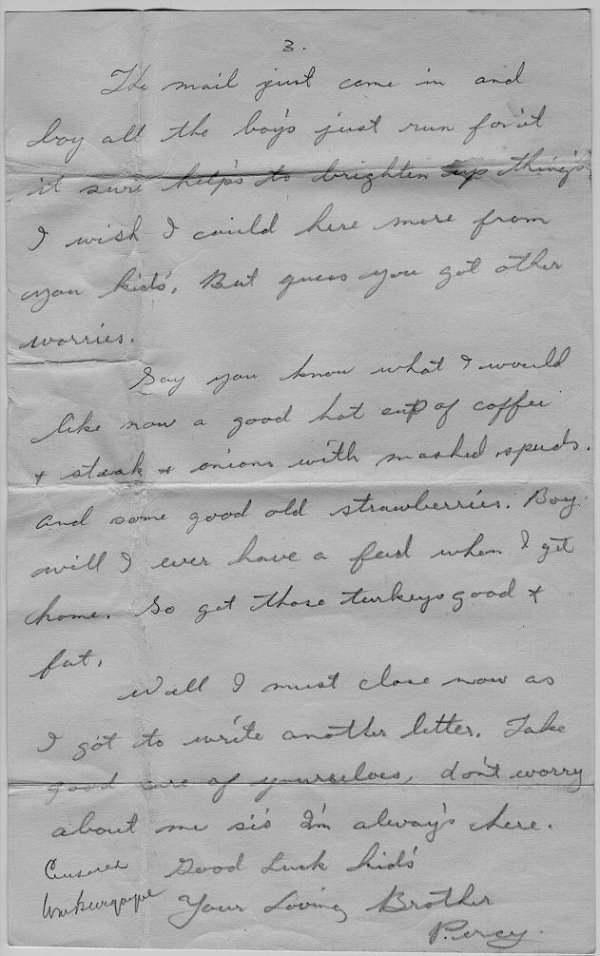 3.
The mail just came in and
boy all the boy's just run for it
it sure help's to brighten up thing's
I wish I could here more from
you kid's. But guess you got other
worries.
Say you know what I would
like now a good hot cup of coffee
+ steak + onions with mashed spuds.
and some good old strawberries. Boy
will I ever have a feed when I get
home. So get those turkeys good +
fat.
Well I must close now as
I got to write another letter. Take
good care of yourselves, don't worry
about me sis I'm alway's here.
Good Luck kid's
Censored
Your Loving Brother
Percy.